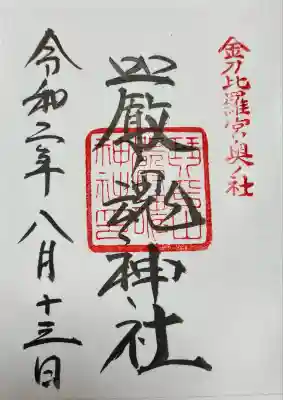 金刀比羅宮奥ノ社
嚴魂神社
令和二年八月十三日